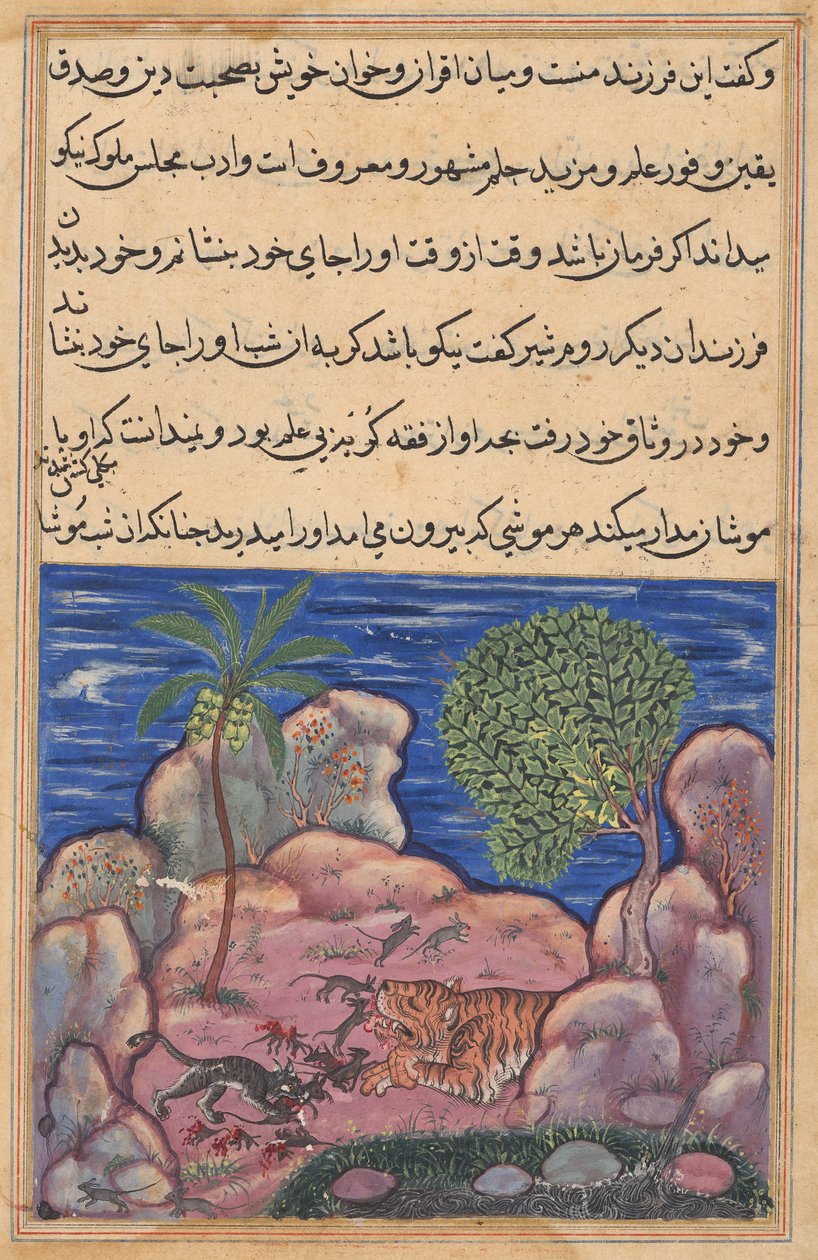 و گفت این فرزند منست و میان اقران و خوان خویش بصحبت دین و صدق
یقین و فور علم و مزید حلم مشهور و معروف است و ادب مجلس ملوک نیکو
میداند اکر فرمان باشد وقت از وقت او را جای خود بنشانم و خود بدیدن
فرزندان دیکر روم شیر کفت نیکو باشد کربه ان شب او را جای خود بنشاند
و خود در وثاق خود رفت بجه او از فقه کُربَزیی علم بود و نمیدانست که او با
موشان مدارا میکند هر موشی که بیرون می امد او را میدرید جنانکه ان شب مُوشان
بکلی کشته شدند